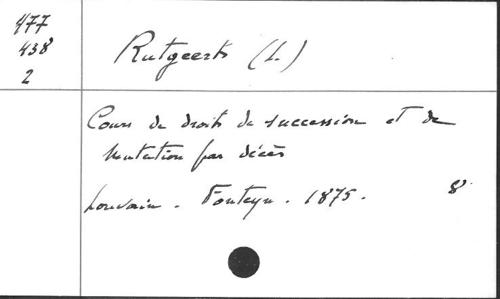 477
438
2
Rutgeerts (L.)
Cours de droits de succession et de
mutation par décès
Louvain. Fonteyn. 1875. 8°